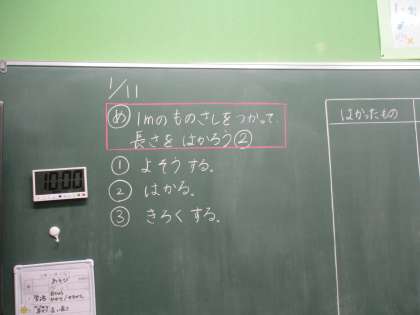 1/11
め 1mのものさしをつかって
長さをはかろう②
① よそうする。
② はかる。
③ きろくする。
はかったもの
10:00